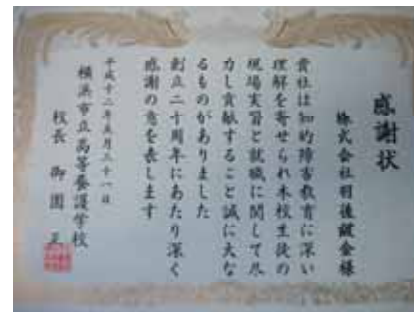 感謝状
株式会社羽後鍍金様
貴社は知的障害教育に深い
理解を寄せられ本校生徒の
現場実習と就職に関して尽
力し貢献すること誠に大な
るものがありました
創立二十周年にあたり深く
感謝の意を表します
平成十二年五月三十一日
横浜市立高等養護学校
校長 御園 正